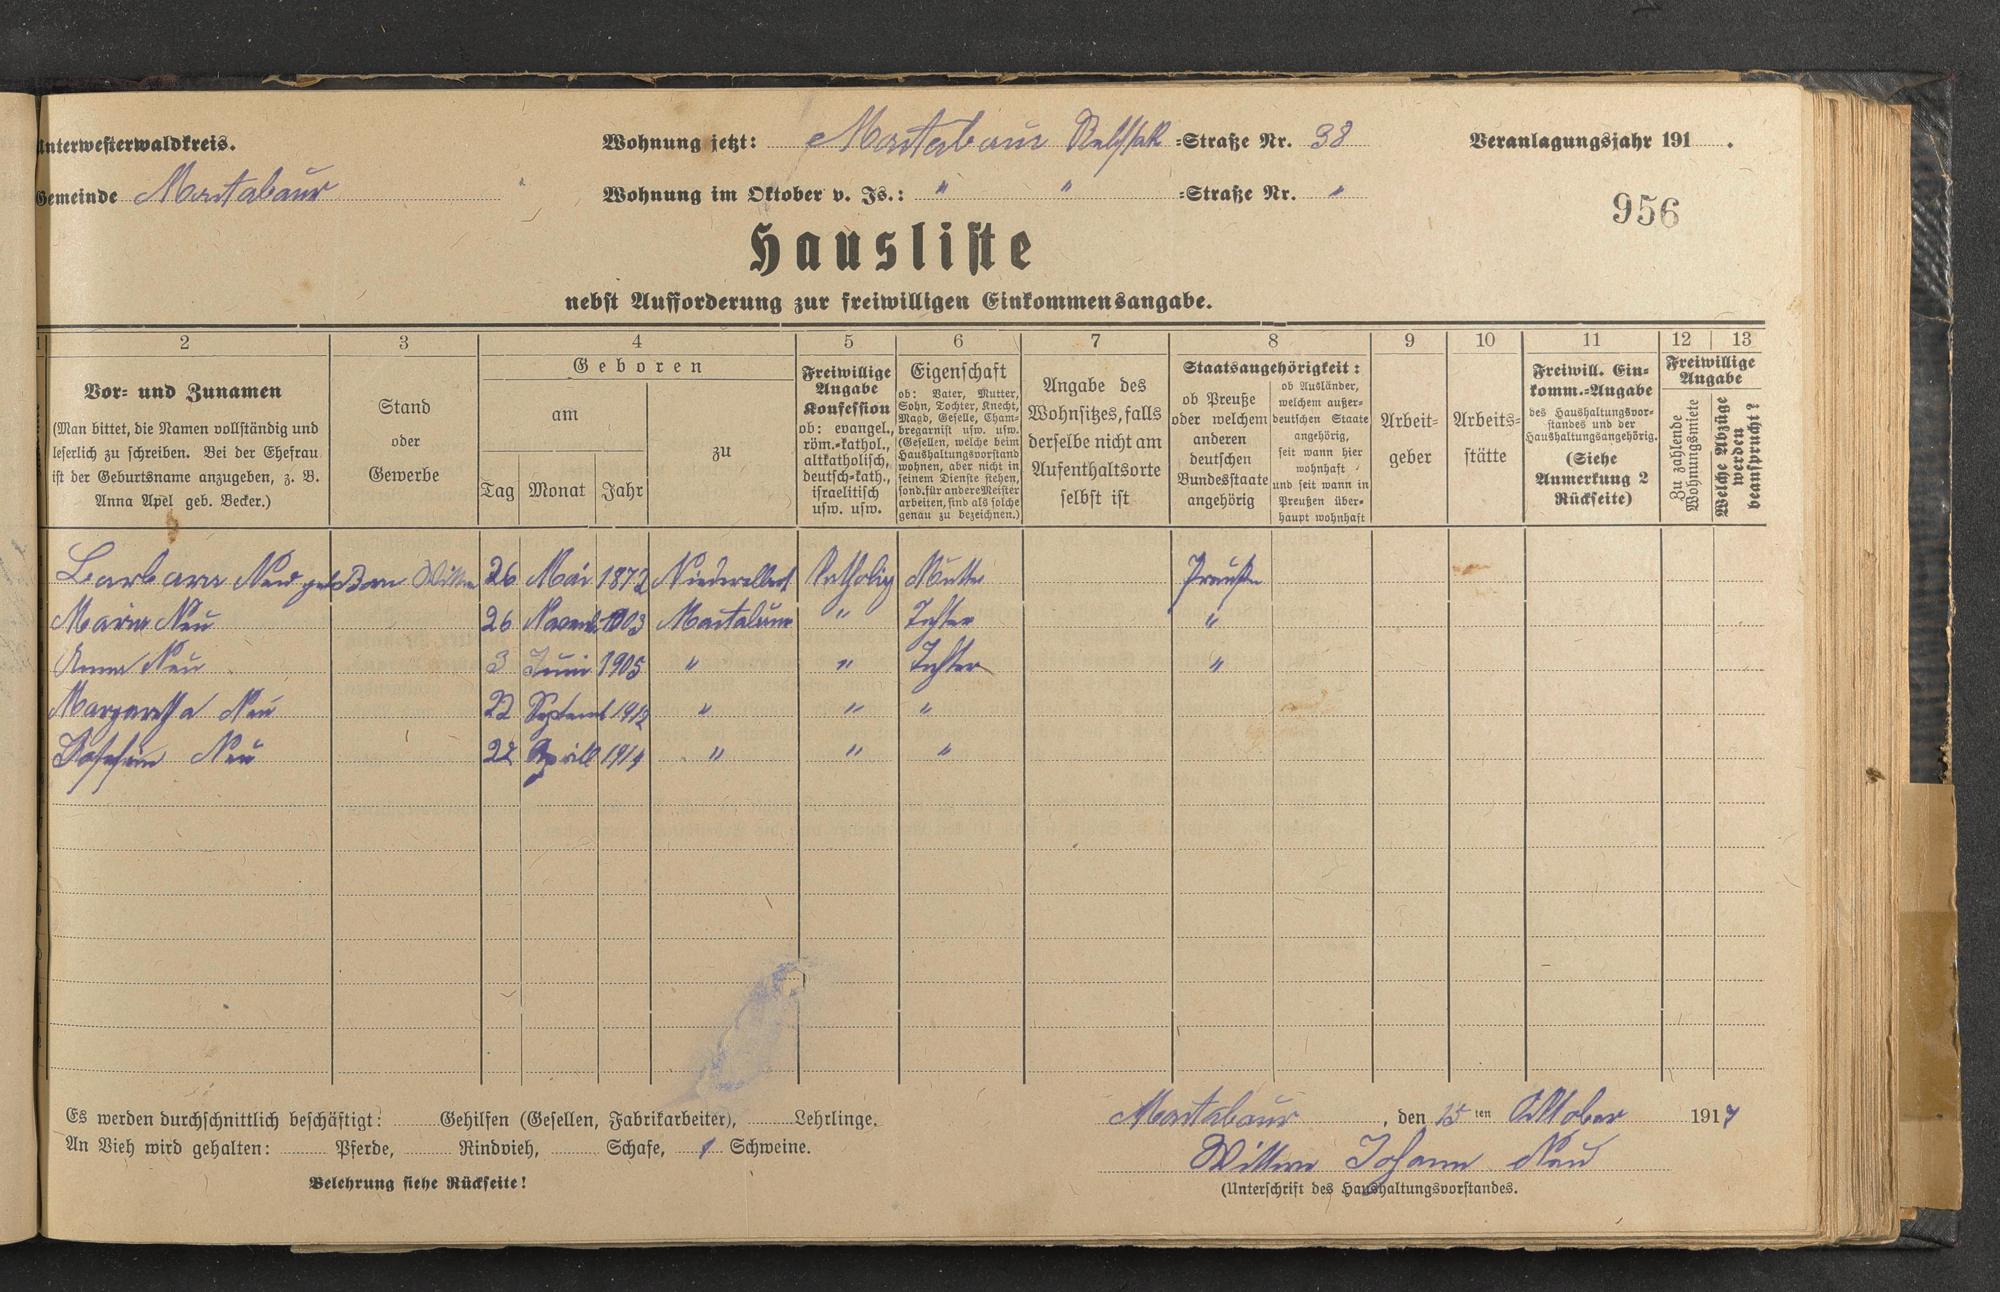 Unterwesterwaldkreis.
Wohnung jetzt: Montabaur -Straße Nr. 38
Veranlagungsjahr 191 .
Gemeinde Montabaur
Wohnung im Oktober v. Js.: " " -Straße Nr. "
956
Hausliste
nebst Aufforderung zur freiwilligen Einkommensangabe.
1 2 3 4 5 6 7 8 9 10 11 12 13
Vor- und Zunamen
(Man bittet, die Namen vollständig und
leserlich zu schreiben. Bei der Ehefrau
ist der Geburtsname anzugeben, z. B.
Anna Apel geb. Becker.)
Stand
oder
Gewerbe
Geboren
am
Tag Monat Jahr
zu
Freiwillige
Angabe
Konfession
ob: evangel.,
röm.-kathol.,
altkatholisch,
deutsch-kath.,
israelitisch
usw. usw.
Eigenschaft
ob: Vater, Mutter,
Sohn, Tochter, Knecht,
Magd, Geselle, Cham-
bregarnist usw. usw.
(Gesellen, welche beim
Haushaltungsvorstand
wohnen, aber nicht in
seinem Dienste stehen,
sond. für andere Meister
arbeiten, sind als solche
genau zu bezeichnen.)
Angabe des
Wohnsitzes, falls
derselbe nicht am
Aufenthaltsorte
selbst ist
Staatsangehörigkeit:
ob Preuße
oder welchem
anderen
deutschen
Bundesstaate
angehörig
ob Ausländer,
welchem außer-
deutschen Staate
angehörig,
seit wann hier
wohnhaft
und seit wann in
Preußen über-
haupt wohnhaft
Arbeit-
geber
Arbeits-
stätte
Freiwill. Ein-
komm.-Angabe
des Haushaltungsvor-
standes und der
Haushaltungsangehörig.
(Siehe
Anmerkung 2
Rückseite)
Freiwillige
Angabe
Zu zahlende
Wohnungsmiete
Welche Abzüge
werden
beansprucht?
Barbara Neu geb 26 Mai 1872 Katholig Mutter Preuße
Maria Neu 26 Novemb 1903 Montabaur " Tochter "
Anna Neu 3 Juni 1905 " " Tochter "
Margaretha Neu 22 Septemb 1912 " " "
Josefine Neu 22 Aprill 1914 " " "
Es werden durchschnittlich beschäftigt: Gehilfen (Gesellen, Fabrikarbeiter), Lehrlinge.
An Vieh wird gehalten: Pferde, Rindvieh, Schafe, 1 Schweine.
Belehrung siehe Rückseite!
Montabaur , den 15 ten Oktober 1917
Wittwe Johann Neu
(Unterschrift des Haushaltungsvorstandes.